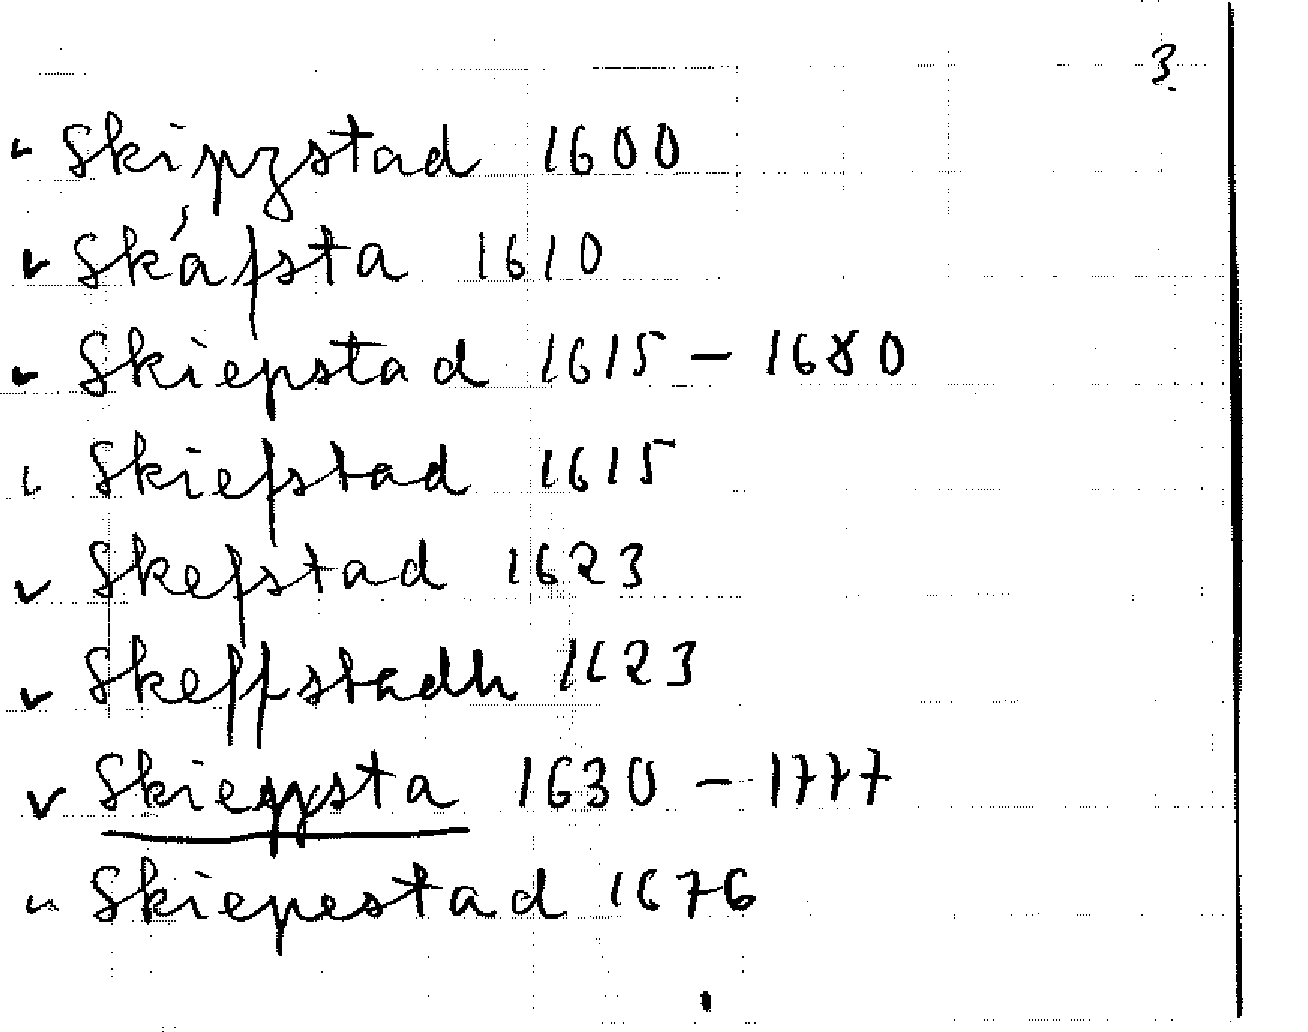 3.
Skipzstad 1600
Skáfsta 1610
Skiepstad 1615 – 1680
Skiefstad 1615
Skefstad 1623
Skeffstadh 1623
Skieppsta 1630 – 1777
Skiepestad 1676